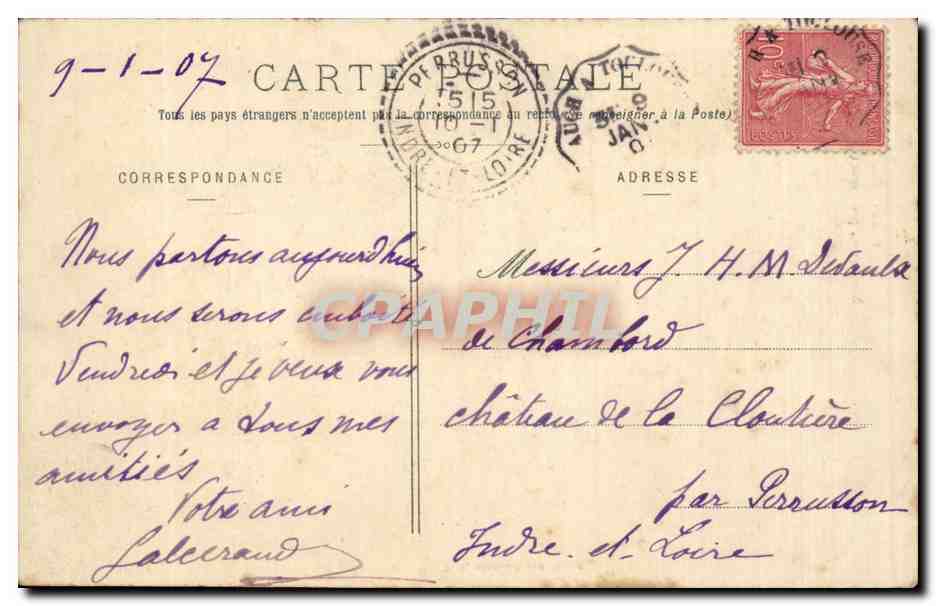 9-1-07
CARTE POSTALE
Tous les pays étrangers n'acceptent pas la correspondance au recto (se renseigner à la Poste)
CORRESPONDANCE
ADRESSE
PERRUSSON
15 15
10 -1
07
INDRE-ET-LOIRE
TOULOUSE
JANV
10
POSTES
Nous partons aujourd'hui
et nous serons
Vendredi et je veux vous
envoyer a tous mes
amitiés
Votre ami
Galcerand
Messieurs J. H. M Dedaulx
de Chambord
château de la Cloutière
par Perrusson
Indre-et-Loire
CPAPHIL